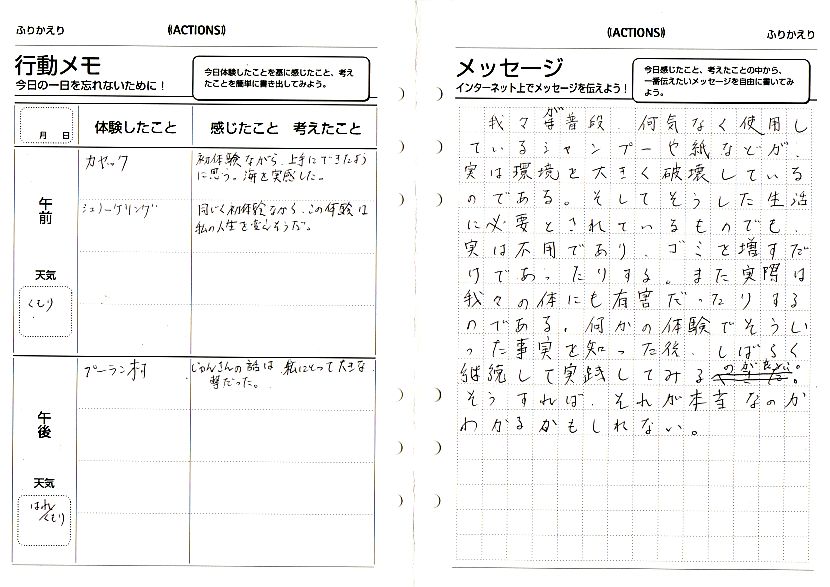 ふりかえり
《ACTIONS》
行動メモ
今日の一日を忘れないために！
今日体験したことを基に感じたこと、考え
たことを簡単に書き出してみよう。
月 日
体験したこと
感じたこと 考えたこと
午前
カヤック
初体験ながら、上手にできたよう
に思う。海を実感した。
シュノーケリング
同じく初体験ながら、この体験は
私の人生を変えそうだ。
天気
くもり
午後
プーラン村
じゅんさんの話は、私にとって大きな
だった。
天気
はれ
くもり
《ACTIONS》
ふりかえり
メッセージ
インターネット上でメッセージを伝えよう！
今日感じたこと、考えたことの中から、
一番伝えたいメッセージを自由に書いてみ
よう。
我々が普段、何気なく使用し
ているシャンプーや紙などが、
実は環境を大きく破壊している
のである。そしてそうした生活
に必要とされているものでも、
実は不用であり、ゴミを増すだ
けであったりする。また実際は
我々の体にも有害だったりする
のである。何かの体験でそうい
った事実を知った後、しばらく
継続して実践してみる
そうすれば、それが本当なのか
わかるかもしれない。